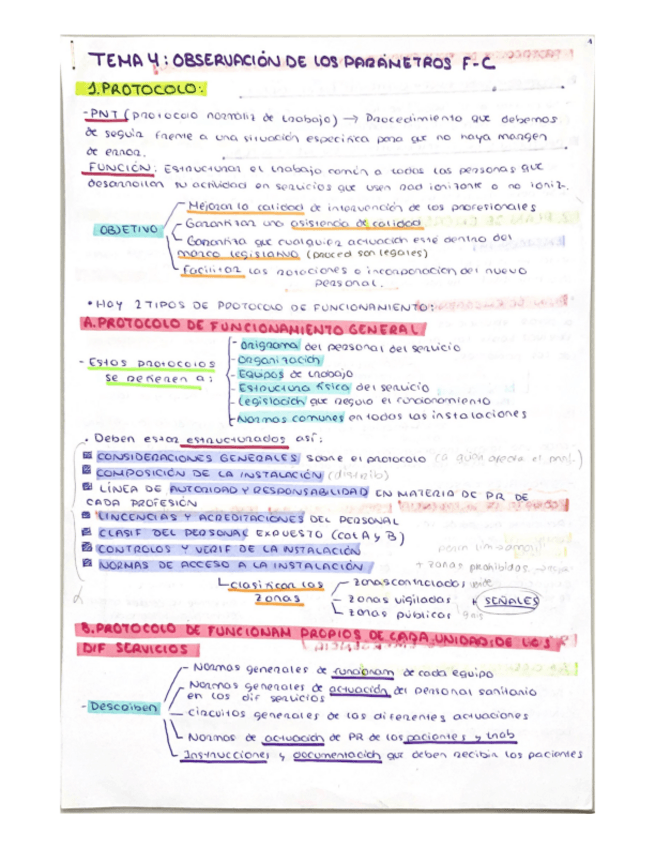 TEMA 4: OBSERVACIÓN DE LOS PARÁMETROS F-C
1.PROTOCOLO:
-PNT (protocolo normaliz de trabajo) → Procedimiento que debemos
de seguir frente a una situación específica para que no haya margen
de error.
FUNCIÓN: Estructurar el trabajo común a todas las personas que
desarrollan su actividad en servicios que usen rad ionizante o no ioniz.
OBJETIVO
- Mejorar la calidad de intervención de los profesionales
- Garantizar una asistencia de calidad
- Garantiza que cualquier actuación esté dentro del
marco legislativo (proced son legales)
- Facilitar las rotaciones o incorporación del nuevo
personal.
• HAY 2 TIPOS DE PROTOCOLO DE FUNCIONAMIENTO:
A.PROTOCOLO DE FUNCIONAMIENTO GENERAL
- Estos protocolos
se refieren a:
- Origrama del personal del servicio
- Organización
- Equipos de trabajo
- Estructura física del servicio
- Legislación que regula el funcionamiento
- Normas comunes en todas las instalaciones
• Deben estar estructurados así:
CONSIDERACIONES GENERALES sobre el protocolo (a quién afecta el)
COMPOSICIÓN DE LA INSTALACIÓN (distrib)
LÍNEA DE AUTORIDAD Y RESPONSABILIDAD EN MATERIA DE PR DE
CADA PROFESIÓN
LINCENCIAS Y ACREDITACIONES DEL PERSONAL
CLASIF DEL PERSONAL EXPUESTO (cat A y B)
CONTROLOS Y VERIF DE LA INSTALACIÓN
NORMAS DE ACCESO A LA INSTALACIÓN
+ zonas prohibidas
Clasifican las
zonas
- zonas controladas
- zonas vigiladas + SEÑALES
- zonas públicas
B.PROTOCOLO DE FUNCIONAM PROPIOS DE CADA UNIDAD; DE LOS
DIF SERVICIOS
- Describen
- Normas generales de funcionam de cada equipo
- Normas generales de actuación del personal sanitario
en los dif servicios
- circuitos generales de las diferentes actuaciones
- Normas de actuación de PR de los pacientes y trab
- Instrucciones y documentación que deben recibir los pacientes